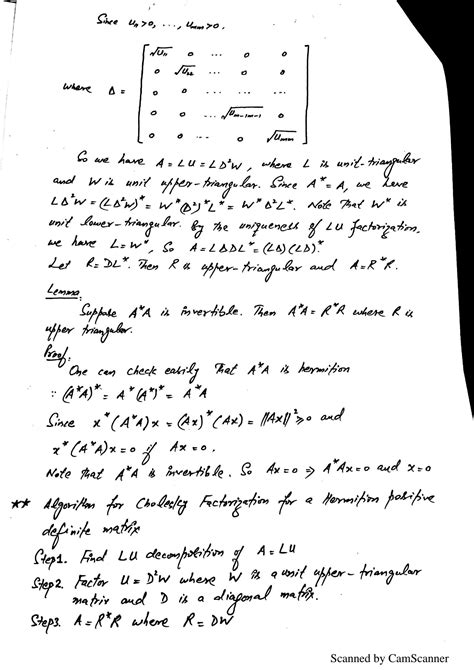 Since u₁₁>0, ..., uₘₘ>0,
where Δ = [ √u₁₁ 0 ... 0 0
0 √u₂₂ ... 0 0
0 0 ... ... ...
0 0 ... √uₘ₋₁ₘ₋₁ 0
0 0 ... 0 √uₘₘ ]
So we have A = LU = LΔ²W, where L is unit-triangular
and W is unit upper-triangular. Since A* = A, we have
LΔ²W = (LΔ²W)* = W*(Δ²)*L* = W*Δ²L*. Note that W* is
unit lower-triangular. By the uniqueness of LU factorization,
we have L = W*, So A = LΔΔL* = (LΔ)(LΔ)*.
Let R = DL*. Then R is upper-triangular and A = R*R.
Lemma:
Suppose A*A is invertible. Then A*A = R*R where R is
upper triangular.
Proof:
One can check easily that A*A is hermition
∵ (A*A)* = A*(A*)* = A*A
Since x*(A*A)x = (Ax)*(Ax) = ||Ax||² ≥ 0 and
x*(A*A)x = 0 if Ax = 0.
Note that A*A is invertible. So Ax = 0 ⇒ A*Ax = 0 and x = 0
** Algorithm for Cholesky Factorization for a Hermition positive
definite matrix
Step1. Find LU decomposition of A = LU
Step2. Factor U = D²W where W is a unit upper-triangular
matrix and D is a diagonal matrix.
Step3. A = R*R where R = DW
Scanned by CamScanner